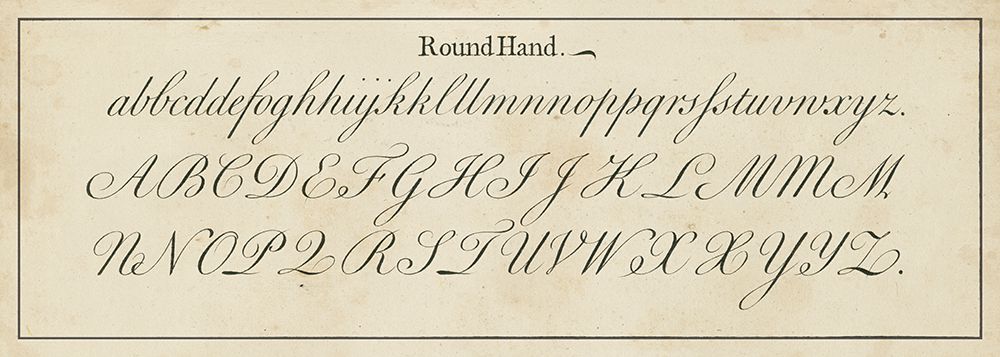 Round Hand.
abbcddefoghhiijkklllmnnnoppqrsſstuvwxyz.
ABCDEFGHIJKLMMM
NNOPQRSTUVWXXYYZ.